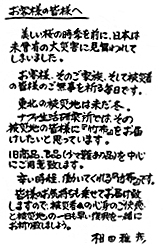 お客様の皆様へ
美しい桜の時季を前に、日本は
未曾有の大災害に見舞われて
しまいました。
お客様、そのご家族、そして被災者
の皆様のご無事を祈る毎日です。
東北の被災地は未だ冬。
ナファ生活研究所では、その
被災地の皆様に「竹布」をお届
けしたいと思っています。
旧商品、製品(少々難あり品)を中心
にご用意致します。
辛い時程、働いてくれる「竹布」です。
皆様のお気持ちも乗せてお届け致
しますので、被災者の心身のご快癒
と被災地の一日も早い復興を一緒に
お祈り致しましょう。
相田雅彦